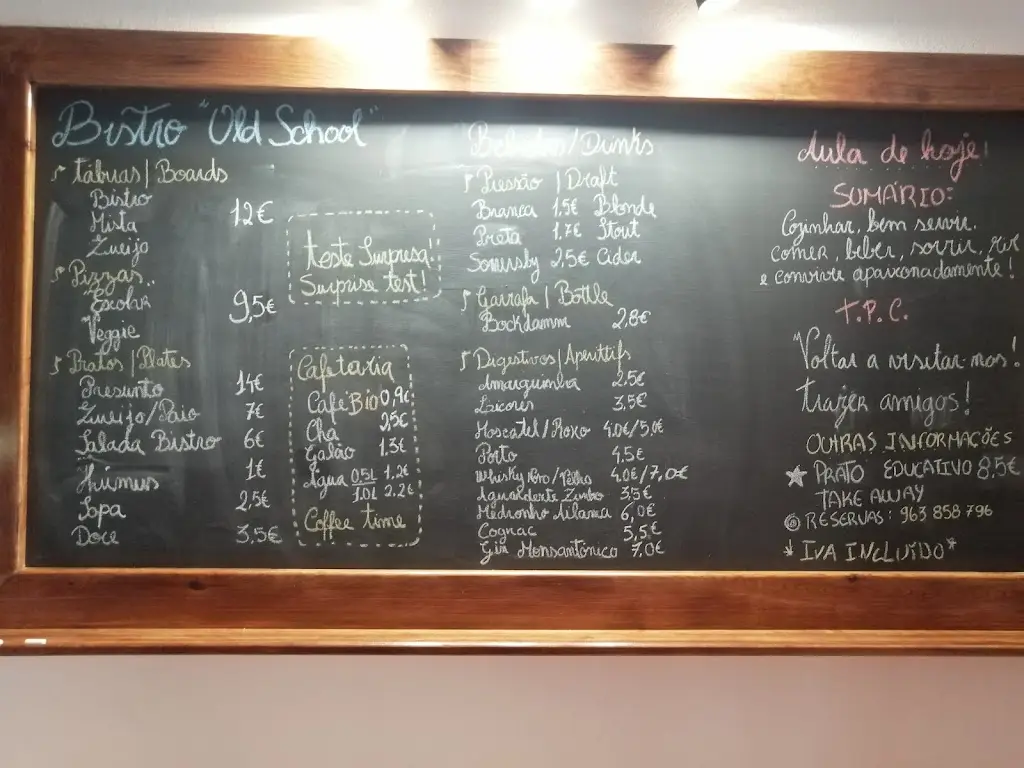 Bistro "Old School"
Tábuas | Boards
Bistro
Mista 12€
Queijo
Pizzas
Escolar 9,5€
Veggie
Pratos | Plates
Presunto 14€
Queijo/Paio 7€
Salada Bistro 6€
Húmus 1€
Sopa 2,5€
Doce 3,5€
Teste Surpresa!
Surprise test!
Cafetaria
Café Bio 0,9€
Chá
Galão 1.3€
Água 0.5L 1.2€
1.0L 2.2€
Coffee time
Bebidas/Drinks
Pressão | Draft
Branca 1,5€ Blonde
Preta 1.7€ Stout
Somersby 2,5€ Cider
Garrafa | Bottle
Bockdamm 2,8€
Digestivos | Aperittifs
Amarguinha 2.5€
Licores 3,5€
Moscatel/Roxo 4.0€/5,0€
Porto 4,5€
Whisky Novo/Velho 4.0€/7,0€
Aguardente Zimbro 3,5€
Medronho Aldama 6,0€
Cognac 5,5€
Gin Monsantónico 7.0€
Aula de hoje!
SUMÁRIO:
Cozinhar, bem servir,
comer, beber, sorrir, rir
e conviver apaixonadamente!
T.P.C.
Voltar a visitar-nos!
Trazer amigos!
OUTRAS INFORMAÇÕES
PRATO EDUCATIVO 8,5€
TAKE AWAY
@ RESERVAS: 963 858 796
* IVA INCLUÍDO*